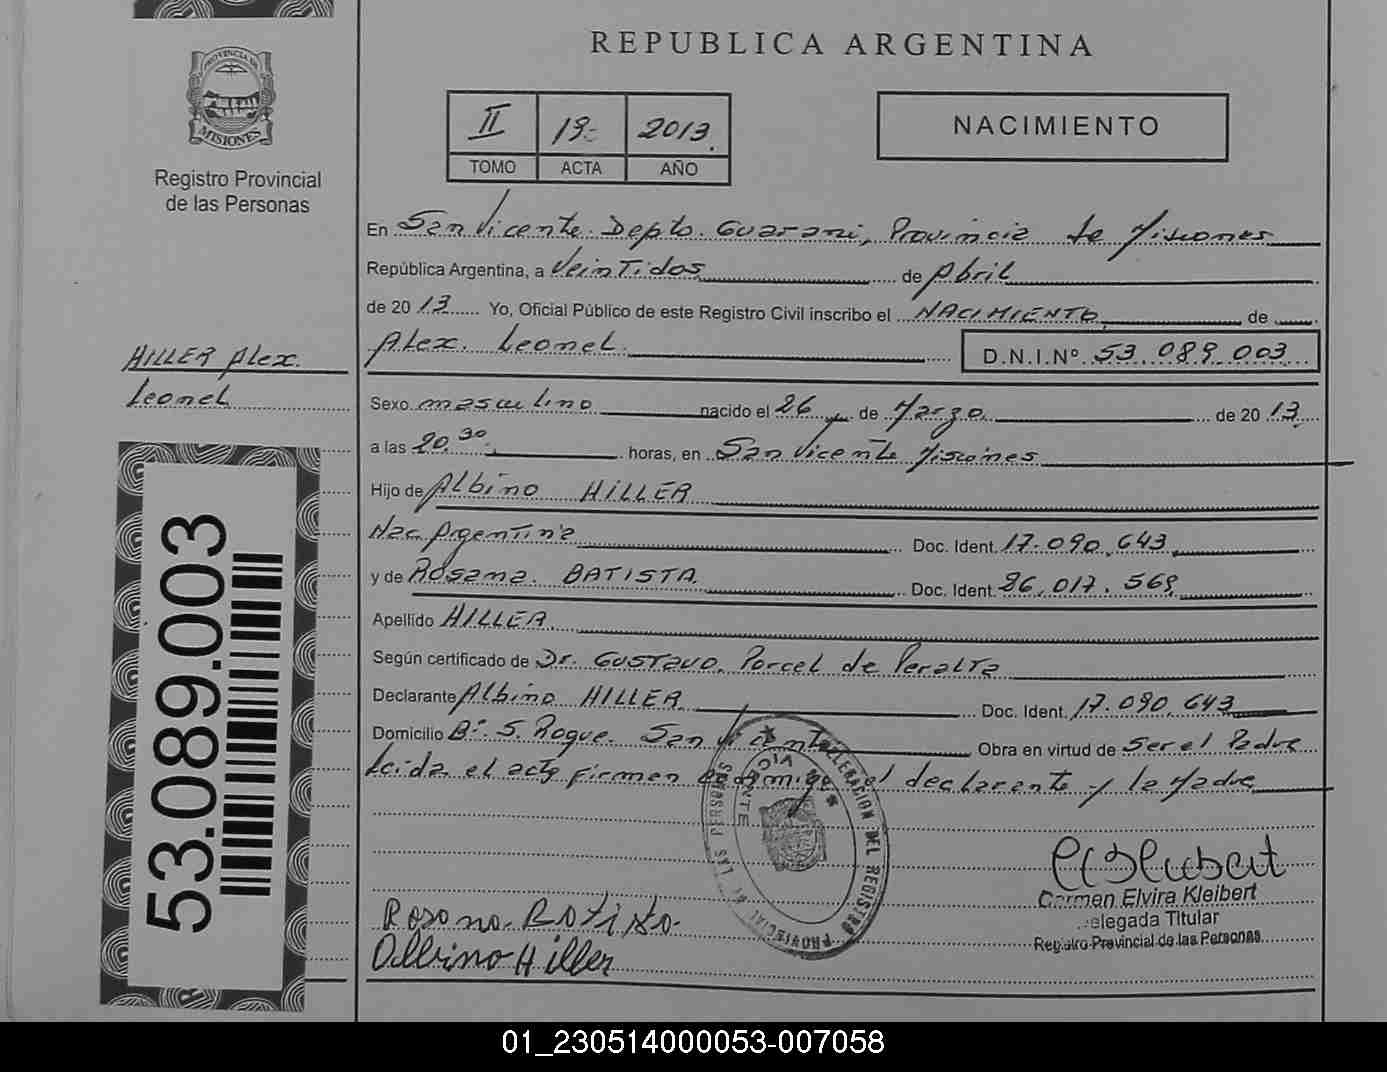 REPUBLICA ARGENTINA
PROVINCIA DE
MISIONES
Registro Provincial
de las Personas
II 19 2013.
TOMO ACTA AÑO
NACIMIENTO
En San Vicente. Depto. Guarani, Provincia de Misiones
República Argentina, a Veintidos de Abril
de 2013 Yo, Oficial Público de este Registro Civil inscribo el NACIMIENTO de
Alex. Leonel. D.N.I.Nº 53.089.003
HILLER Alex.
Leonel
Sexo masculino nacido el 26 de Marzo de 2013.
a las 20.30 horas, en San Vicente Misiones
Hijo de Albino HILLER
Nac. Argentina Doc. Ident. 17.090.643
y de Rosana. BATISTA. Doc. Ident. 26.017.569
Apellido HILLER.
Según certificado de Dr. GUSTAVO. Porcel de Peralta
Declarante Albino HILLER Doc. Ident. 17.090.643
Domicilio Bº. S. Roque. San Vicente Obra en virtud de Ser el Padre
Leida el acta firman conmigo el declarante y la Madre
53.089.003
Carmen Elvira Kleibert
Delegada Titular
Registro Provincial de las Personas
Rosana Batista.
Albino Hiller
01_230514000053-007058